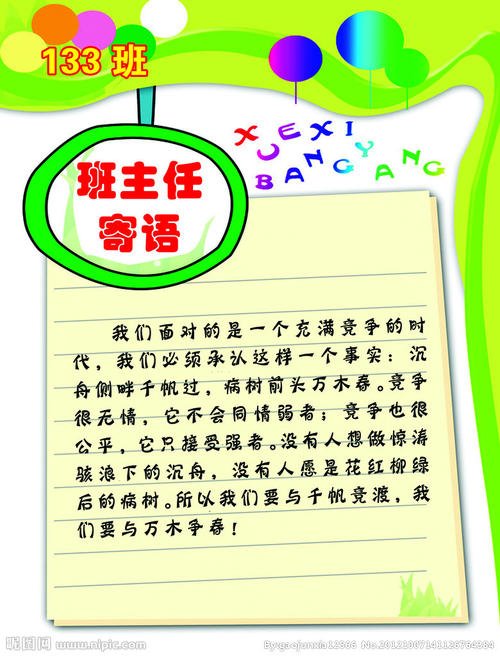 133 班
XUEXI
BANGYANG
班主任
寄语
我们面对的是一个充满竞争的时
代，我们必须承认这样一个事实：沉
舟侧畔千帆过，病树前头万木春。竞争
很无情，它不会同情弱者；竞争也很
公平，它只接受强者。没有人想做惊涛
骇浪下的沉舟，没有人愿是花红柳绿
后的病树。所以我们要与千帆竞渡，我
们要与万木争春！
昵图网 www.nipic.com
By:gaojunxia12366 No.20121007141126764384